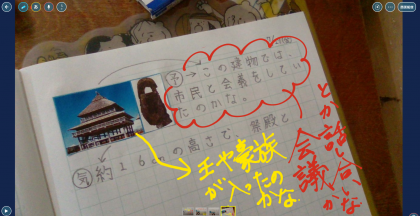 予→この建物では、
市民と会議をしてい
たのかな。
気 約26mの高さで、祭殿と
王や豪族
が入ったの
かな
会議
とか話合いかな